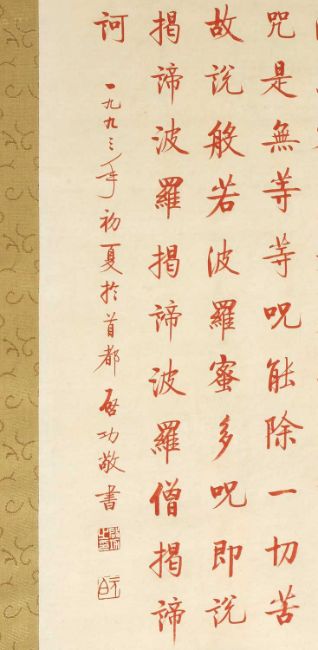 咒是無等等呪能除一切苦
故說般若波羅蜜多呪即說
揭諦波羅揭諦波羅僧揭諦
訶
一九九三年初夏於首都 啓功敬書
元白